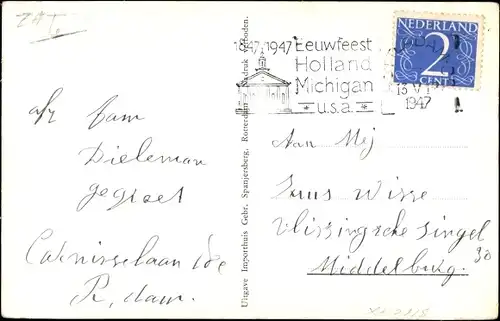 ZAT.
1847-1947 Eeuwfeest
Holland
Michigan
* u.s.a. *
13 VI
1947
NEDERLAND
2
CENT
afz Fam
Dieleman
gegroet
Carnisselaan
R,dam.
Uitgave Importhuis Gebr. Spanjersberg, Rotterdam Nadruk verboden.
Aan Mej
Wisse
Vlissingsche Singel
30
Middelburg.